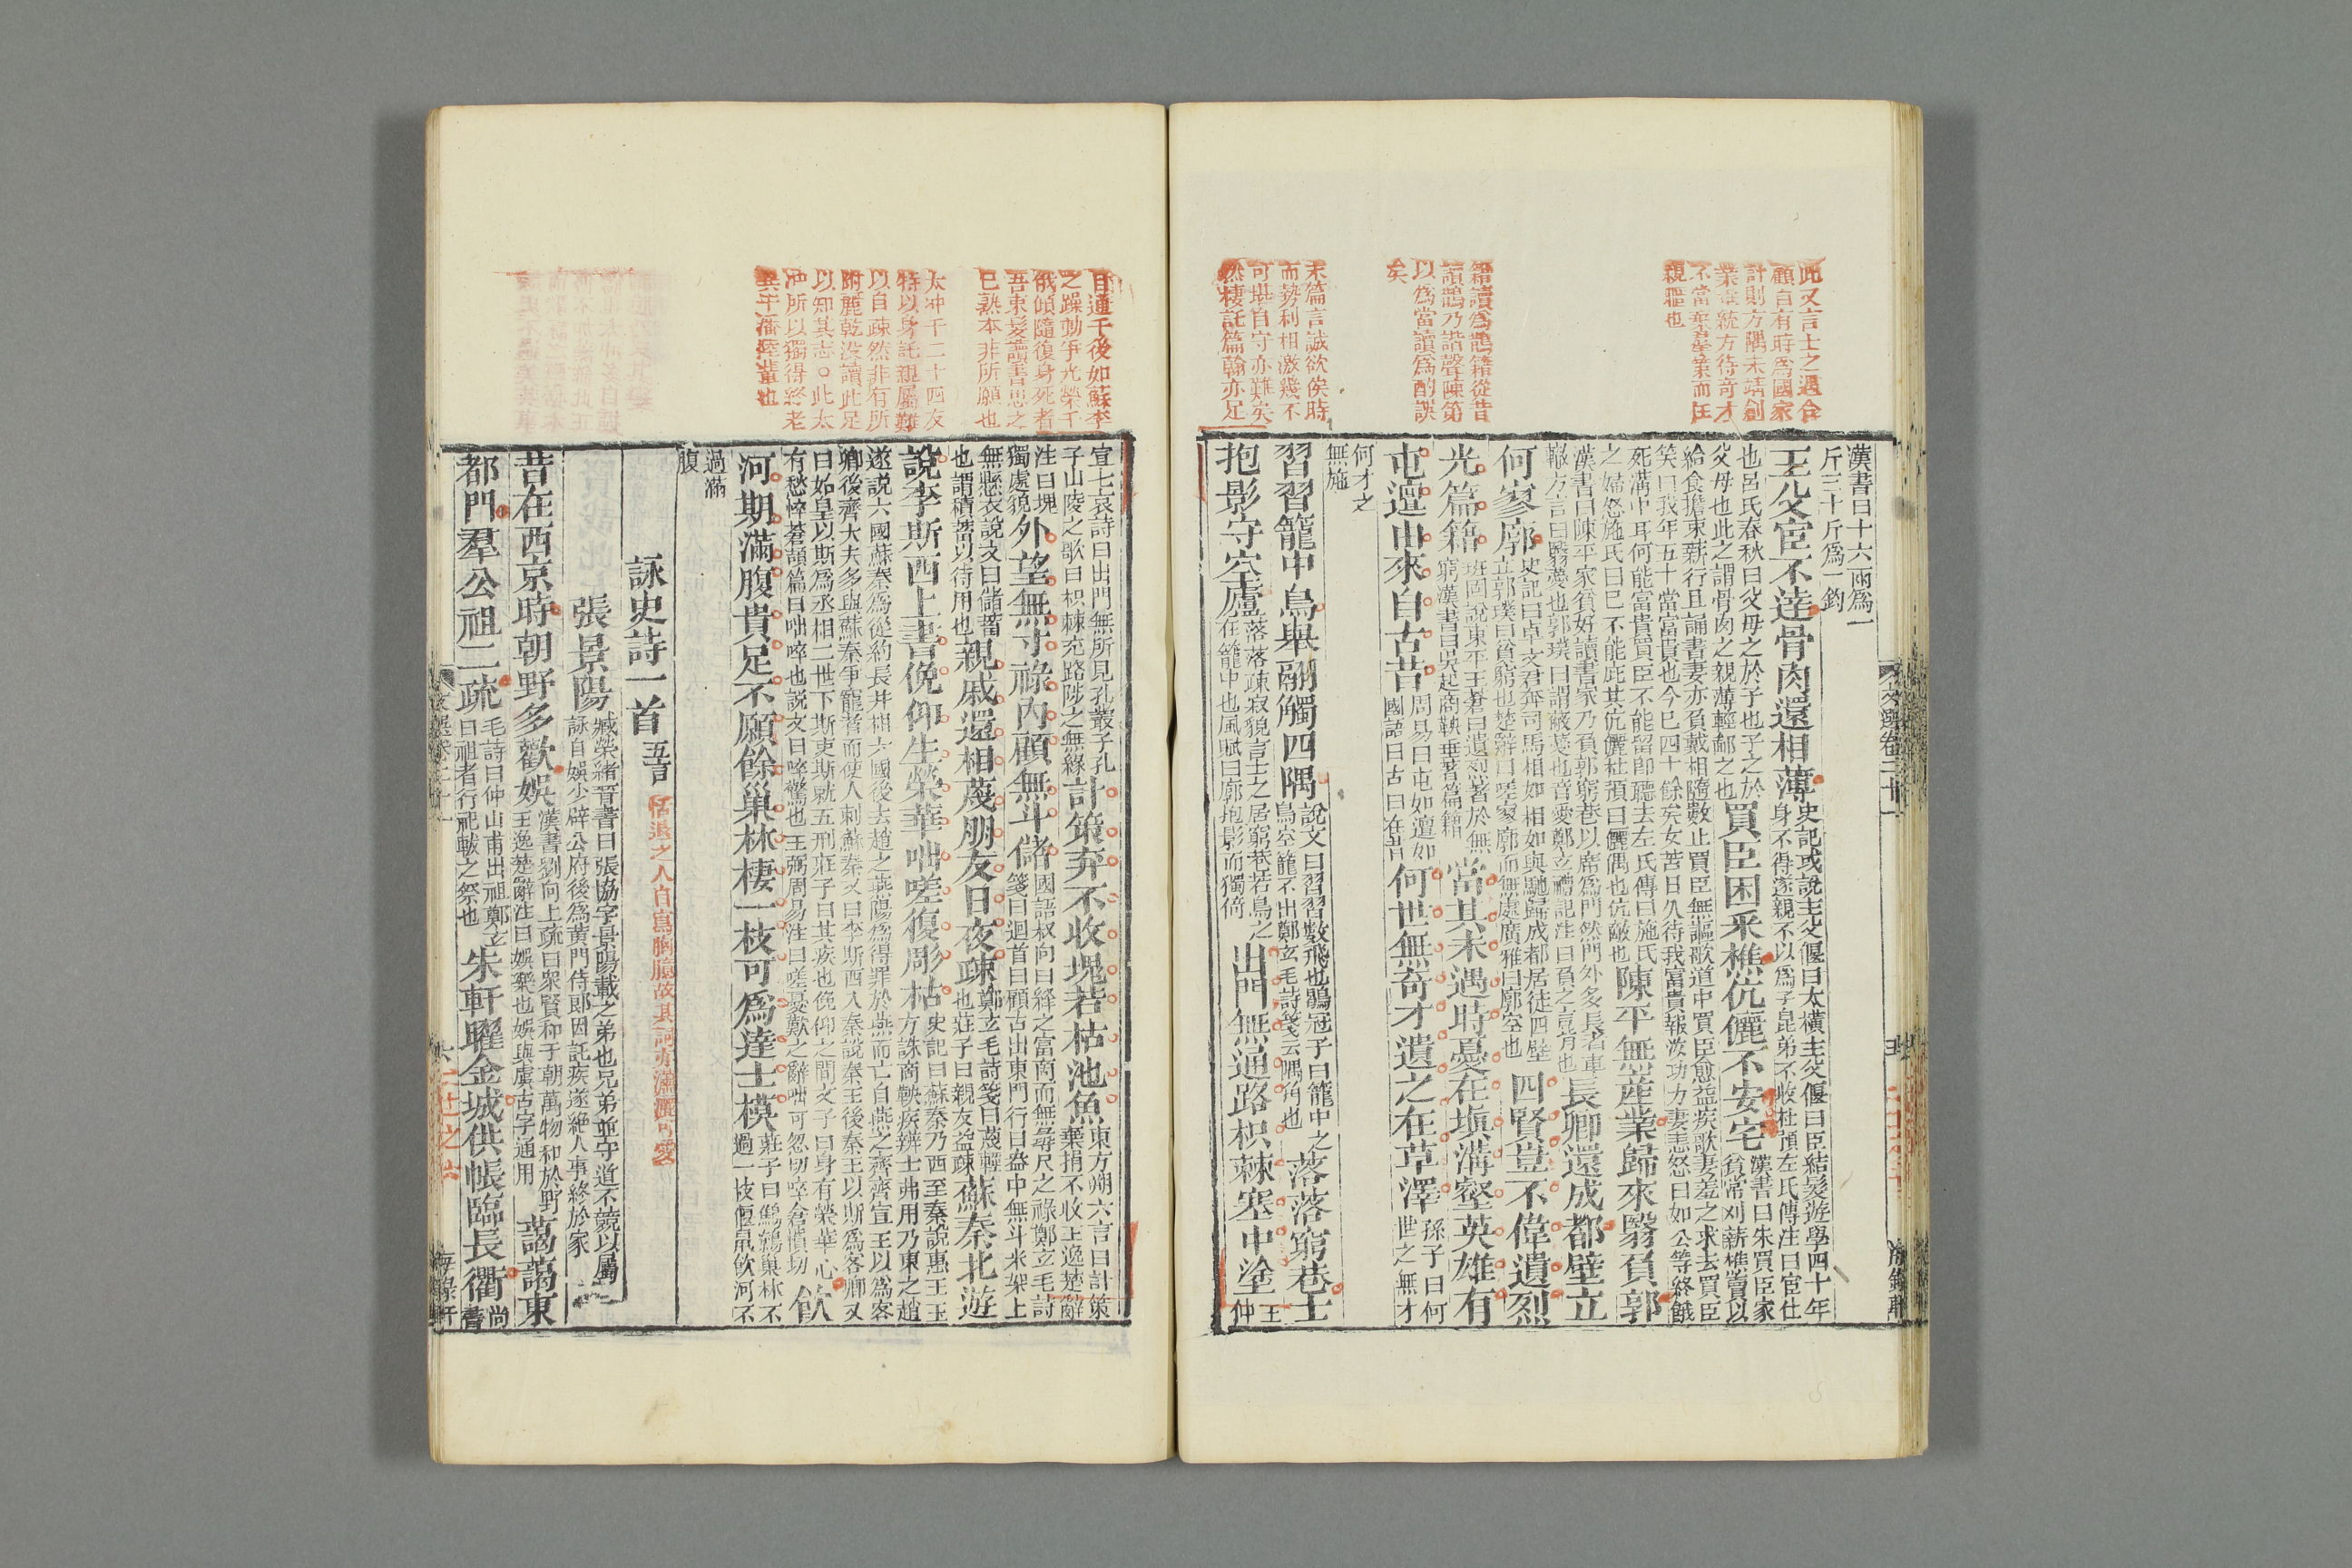 此又言士之遇合
顧自有時爲國家
計則方隅未靖創
業垂統方待奇才
不當棄羣策而任
親暱也
籍讀爲鵲籍從昔
讀鵲乃諧聲陳第
以爲當讀爲酌誤
矣
末篇言誠欲俟時
而勢利相激幾不
可堪自守亦難矣
然棲託篇翰亦足
漢書曰十六兩爲一
斤三十斤爲一鈞
主父宦不達骨肉還相薄
史記或說主父偃曰太橫主父偃曰臣結髮遊學四十年
身不得遂親不以爲子昆弟不收杜預左氏傳注曰宦仕
也呂氏春秋曰父母之於子也子之於
父母也此之謂骨肉之親薄輕鄙之也
買臣困采樵伉儷不安宅
漢書曰朱買臣家
貧常刈薪樵賣以
給食擔束薪行且誦書妻亦負戴相隨數止買臣無謳歌道中買臣愈益疾歌妻羞之求去買臣
笑曰我年五十當富貴也今已四十餘矣女苦日久待我富貴報汝功力妻恚怒曰如公等終餓
死溝中耳何能富貴買臣不能留即聽去左氏傳曰施氏
之婦怒施氏曰已不能庇其伉儷杜預曰儷偶也伉敵也
陳平無產業歸來翳負郭
漢書曰陳平家貧好讀書家乃負郭窮巷以席爲門然門外多長者車
報方言曰翳薆也郭璞曰謂蔽薆也音愛鄭玄禮記注曰負之言背也
長卿還成都壁立
何寥廓
史記曰卓文君奔司馬相如相如與馳歸成都居徒四壁
立郭璞曰貧窮也楚辭曰嗟寥廓而無處廣雅曰廓空也
四賢豈不偉遺烈
光篇籍
班固說東平王蒼曰遺烈著於無
窮漢書曰吳起商鞅垂著篇籍
當其未遇時憂在塡溝壑英雄有
屯邅由來自古昔
周易曰屯如邅如
國語曰古曰在昔
何世無奇才遺之在草澤
孫子曰何
世之無才
何才之
無施
習習籠中鳥舉翮觸四隅
說文曰習習數飛也鶡冠子曰籠中之
鳥空籠不出鄭玄毛詩箋云隅角也
落落窮巷士
抱影守空廬
落落疎寂貌言士之居窮巷若鳥之
在籠中也風賦曰廓抱影而獨倚
出門無通路枳棘塞中塗
王
仲
文選卷二十一
五
海錄軒
自適于後如蘇李
之躁動爭光榮于
俄傾隨復身死者
吾束髮讀書思之
已熟本非所願也
太冲于二十四友
特以身託親屬難
以自疎然非有所
附麗乾没讀此足
以知其志○此太
冲所以獨得終老
異于潘陸輩也
宣七哀詩曰出門無所見孔叢子孔
子山陵之歌曰枳棘充路陟之無緣
計策弃不收塊若枯池魚
東方朔六言曰計策
棄捐不收王逸楚辭
注曰塊
獨處貌
外望無寸祿內顧無斗儲
國語叔向曰絳之富商而無尋尺之祿鄭玄毛詩
箋曰迴首曰顧古出東門行曰盎中無斗米架上
無懸衣說文曰儲蓄
也謂積蓄以待用也
親戚還相蔑朋友日夜疎
鄭玄毛詩箋曰蔑輕
也莊子曰親友益疎
蘇秦北遊
說李斯西上書俛仰生榮華咄嗟復彫枯
史記曰蘇秦乃西至秦說惠王王
方誅商鞅疾辨士弗用乃東之趙
遂說六國蘇秦爲從約長并相六國後去趙之燕陽爲得罪於燕而亡自燕之齊齊宣王以爲客
卿後齊大夫多與蘇秦爭寵者而使人刺蘇秦又曰李斯西入秦說秦王後秦王以斯爲客卿又
曰始皇以斯爲丞相二世下斯吏斯就五刑莊子曰其疾也俛仰之間文子曰身有榮華心
有愁悴蒼頡篇曰咄啐也說文曰啐驚也王弼周易注曰嗟憂歎之辭咄可忽切啐倉憒切
飮
河期滿腹貴足不願餘巢林棲一枝可爲達士模
莊子曰鷦鷯巢林不
過一枝偃鼠飮河不
過滿
腹
詠史詩一首
五言
恬退之人自寫胸臆故其詞亦瀟灑可愛
張景陽
臧榮緒晉書曰張協字景陽載之弟也兄弟並守道不競以屬
詠自娛少辟公府後爲黃門侍郎因託疾遂絕人事終於家
昔在西京時朝野多歡娛
漢書劉向上疏曰衆賢和于朝萬物和於野
王逸楚辭注曰娛樂也娛與虞古字通用
藹藹東
都門羣公祖二疏
毛詩曰仲山甫出祖鄭玄
曰祖者行祀軷之祭也
朱軒曜金城供帳臨長衢
尚
書
文選卷二十一
六
海錄軒